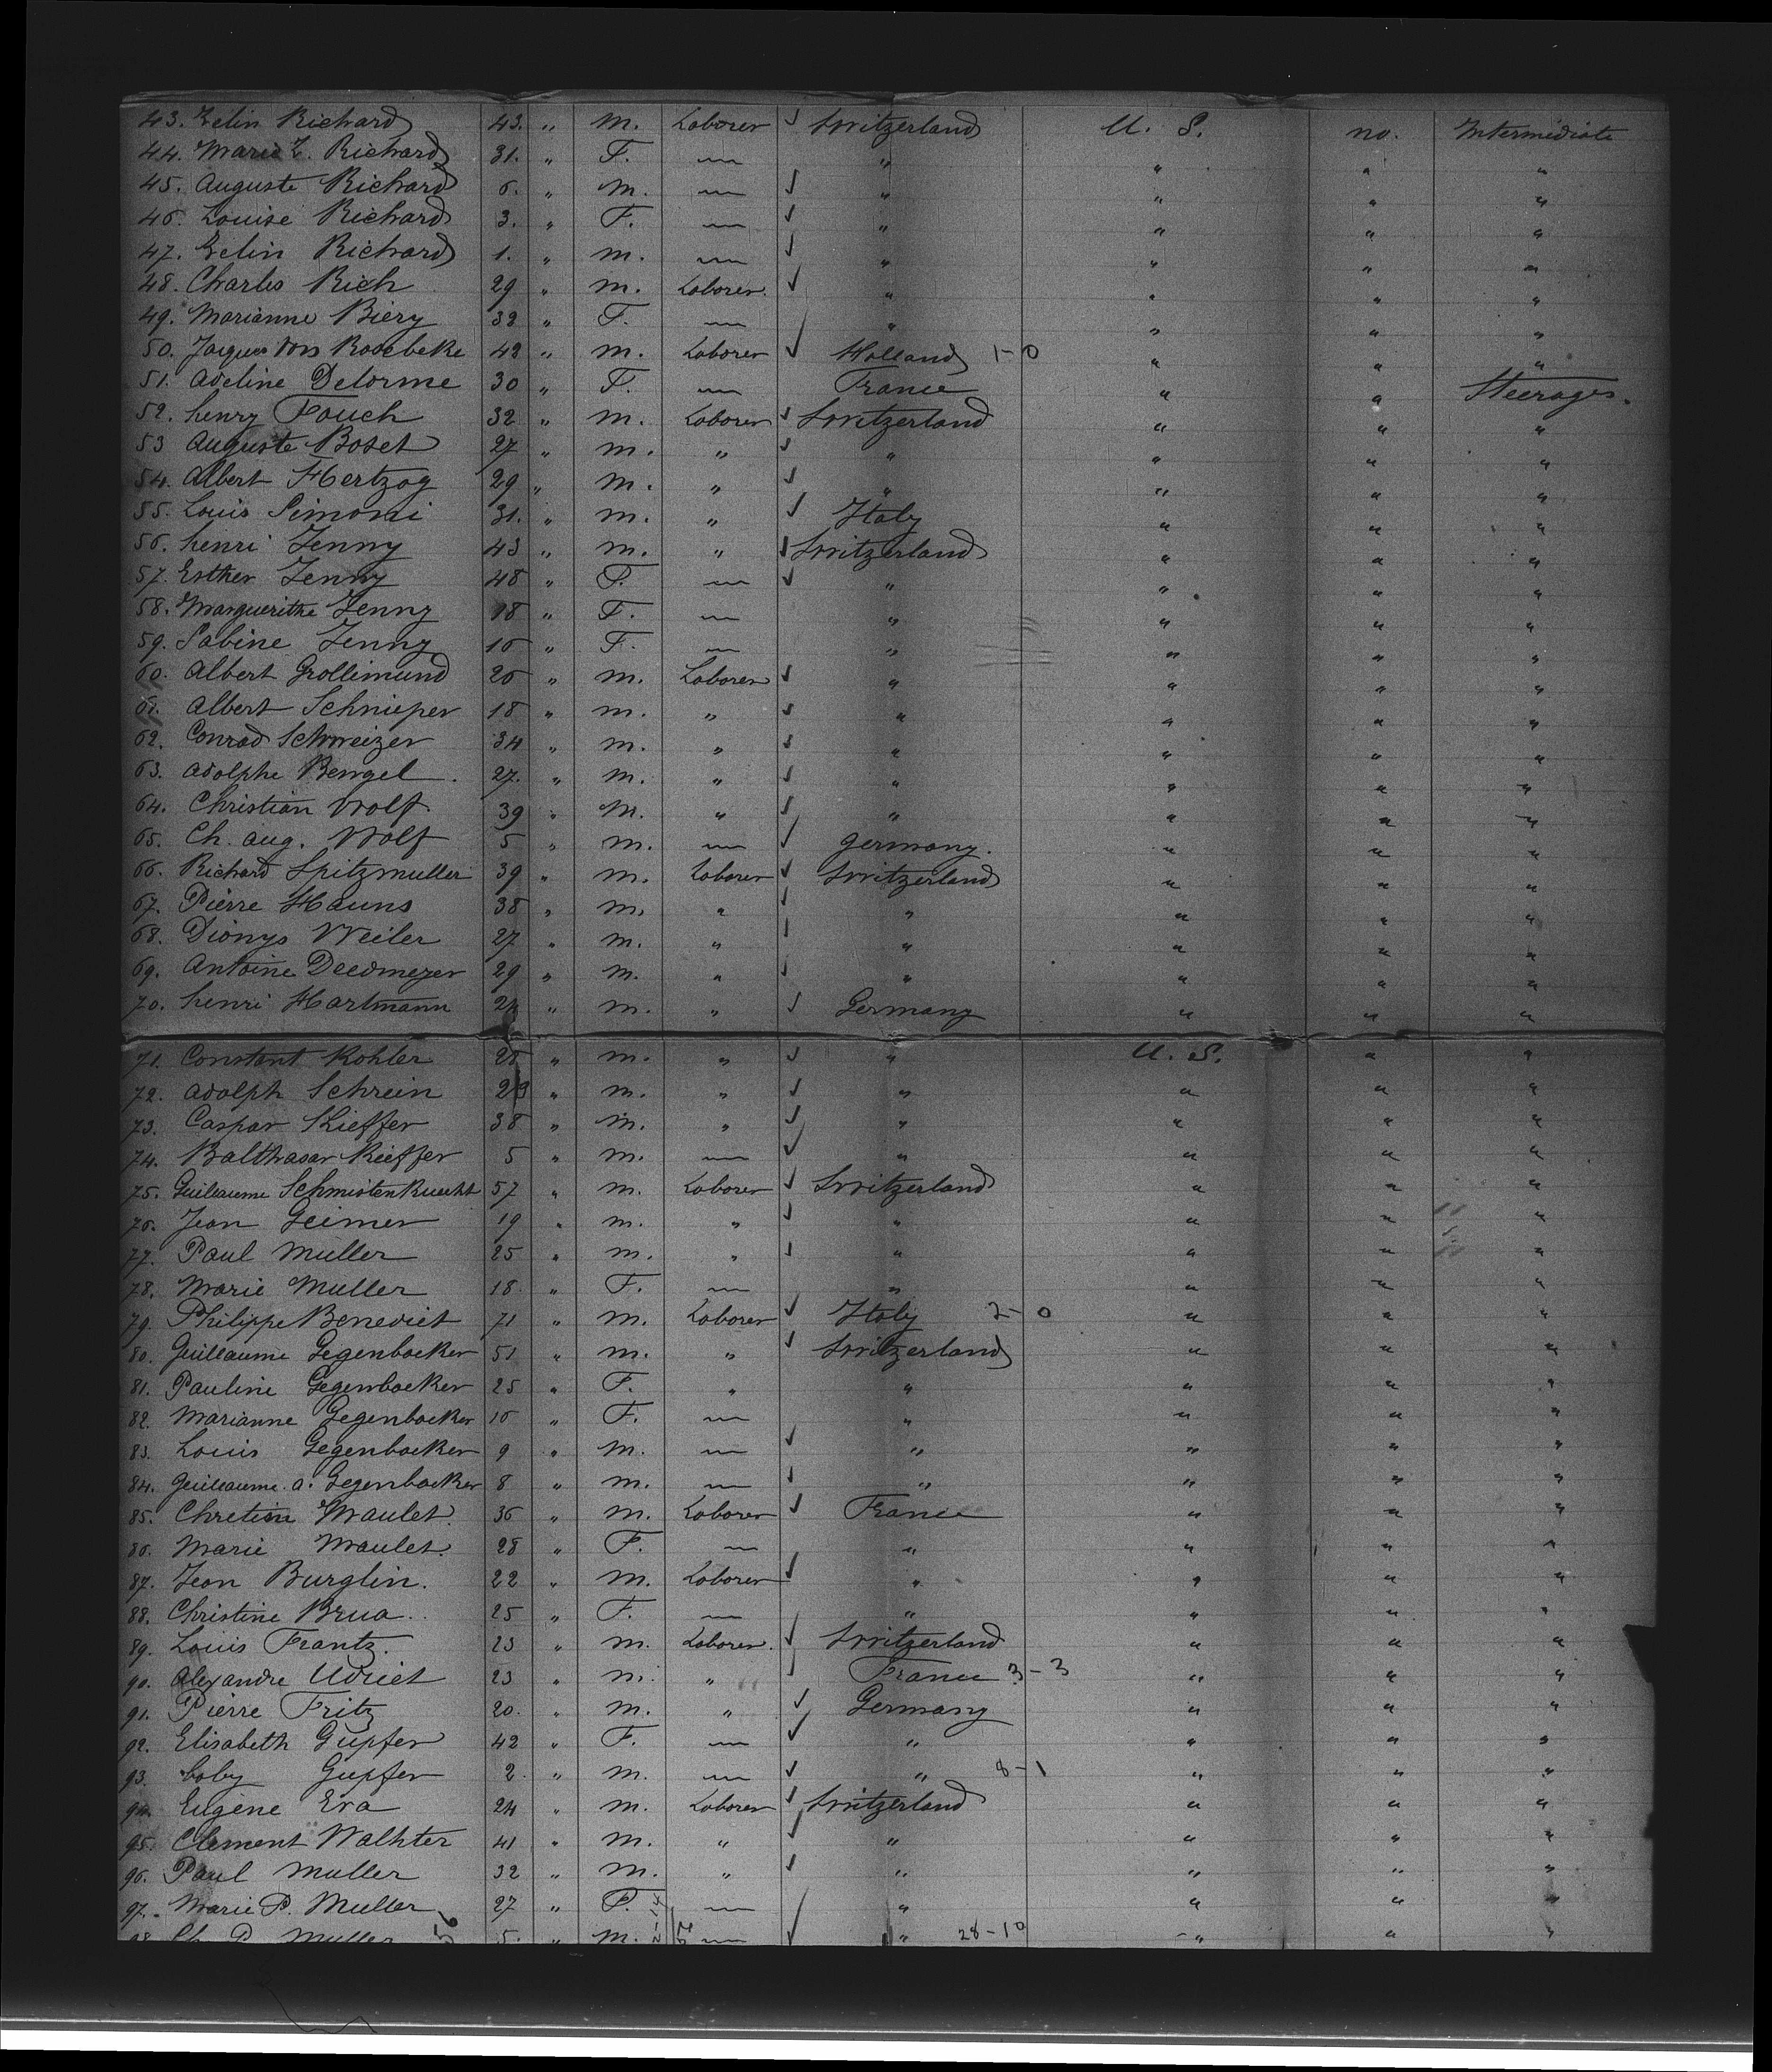 43. Zelin Richard 43. " M. Laborer ✓ Switzerland U. S. no. Intermediate
44. Marie Z. Richard 31. " F. — " " " "
45. Auguste Richard 6. " M. — ✓ " " " "
46. Louise Richard 3. " F. — ✓ " " " "
47. Zelin Richard 1. " M. — ✓ " " " "
48. Charles Rich 29 " M. Laborer. ✓ " " " "
49. Marianne Biery 38 " F. — " " " "
50. Jaques Von Rosebeke 42 " M. Laborer ✓ Holland 1-0 " " "
51. Adeline Delorme 30 " F. — France " " Steerages.
52. henry Fouch 32 " M. Laborer ✓ Switzerland " " "
53 Auguste Boset 27 " M. " ✓ " " " "
54. Albert Hertzog 29 " M. " ✓ " " " "
55. Louis Simoni 31. " M. " ✓ Italy " " "
56. henri Jenny 43 " M. " ✓ Switzerland " " "
57. Esther Jenny 48 " F. — ✓ " " " "
58. Marguerithe Jenny 18 " F. — " " " "
59. Sabine Jenny 16 " F. — " " " "
60. Albert Grollimund 26 " M. Laborer ✓ " " " "
61. Albert Schnieper 18 " M. " ✓ " " " "
62. Conrad Schweizer 34 " M. " ✓ " " " "
63. Adolphe Bengel. 27. " M. " ✓ " " " "
64. Christian Wolf. 39 " M. " ✓ " " " "
65. Ch. Aug. Wolf 5 " M. — ✓ Germany. " " "
66. Richard Spitzmuller 39 " M. Laborer ✓ Switzerland " " "
67. Pierre Hauns 38 " M. " ✓ " " " "
68. Dionys Weiler 27 " M. " ✓ " " " "
69. Antoine Deedmeyer 29 " M. " ✓ " " " "
70. henri Hartmann 24 " M. " ✓ Germany " " "
71. Constant Kohler 28 " M. " ✓ " U. S. " "
72. Adolph Schrein " M. " ✓ " " " "
73. Caspar Kieffer 38 " M. " ✓ " " " "
74. Balthasar Kieffer 5 " M. — ✓ " " " "
75. Guileaume Schmistenknecht 57 " M. Laborer ✓ Switzerland " " "
76. Jean Geimer 19 " M. " ✓ " " " "
77. Paul Muller 25 " M. " ✓ " " " "
78. Marie Muller 18. " F. — " " " "
79. Philippe Benedict 71 " M. Laborer ✓ Italy 2-0 " " "
80. Guillaume Gegenbocker 51 " M. " ✓ Switzerland " " "
81. Pauline Gegenbocker 25 " F. " " " " "
82. Marianne Gegenbocker 16 " F. — " " " "
83. Louis Gegenbocker 9 " M. — ✓ " " " "
84. Guileaume. a. Gegenbocker 8 " M. — ✓ " " " "
85. Chretien Maulet. 36 " M. Laborer ✓ France " " "
86. Marie Maulet. 28 " F. — " " " "
87. Jean Burglin. 22 " M. Laborer ✓ " " " "
88. Christine Brua.. 25 " F. — " " " "
89. Louis Frantz. 23 " M. Laborer. ✓ Switzerland " " "
90. Alexandre Udriet 23 " M. " ✓ France 3-3 " " "
91. Pierre Fritz 20. " M. " ✓ Germany " " "
92. Elisabeth Gupfer 42 " F. — ✓ " " " "
93. boby Gupfer 2. " M. — ✓ " 8-1 " " "
94. Eugène Era 24 " M. Laborer ✓ Switzerland " " "
95. Clement Walhter 41 " M. " ✓ " " " "
96. Paul Muller 32 " M. " ✓ " " " "
97. Marie P. Muller 27 " F. — " " " "
98 Ch. P. Muller 56 5. " M. — ✓ " 28-10 " " "